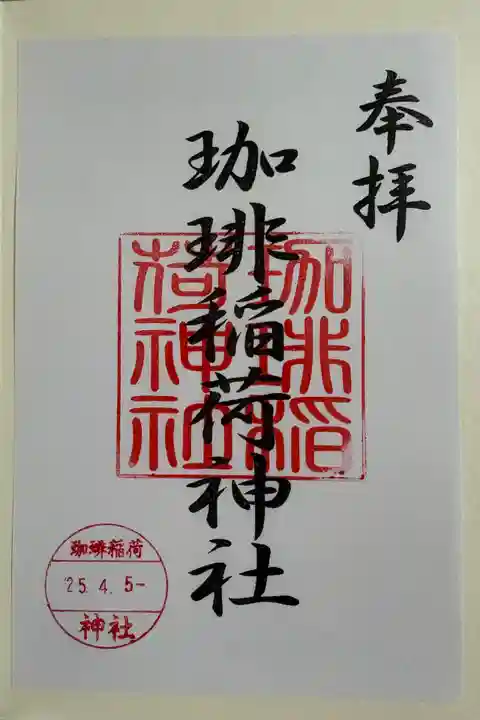 奉拝
珈琲稲荷神社
珈琲稲荷神社
珈琲稲荷
'25.4.5-
神社